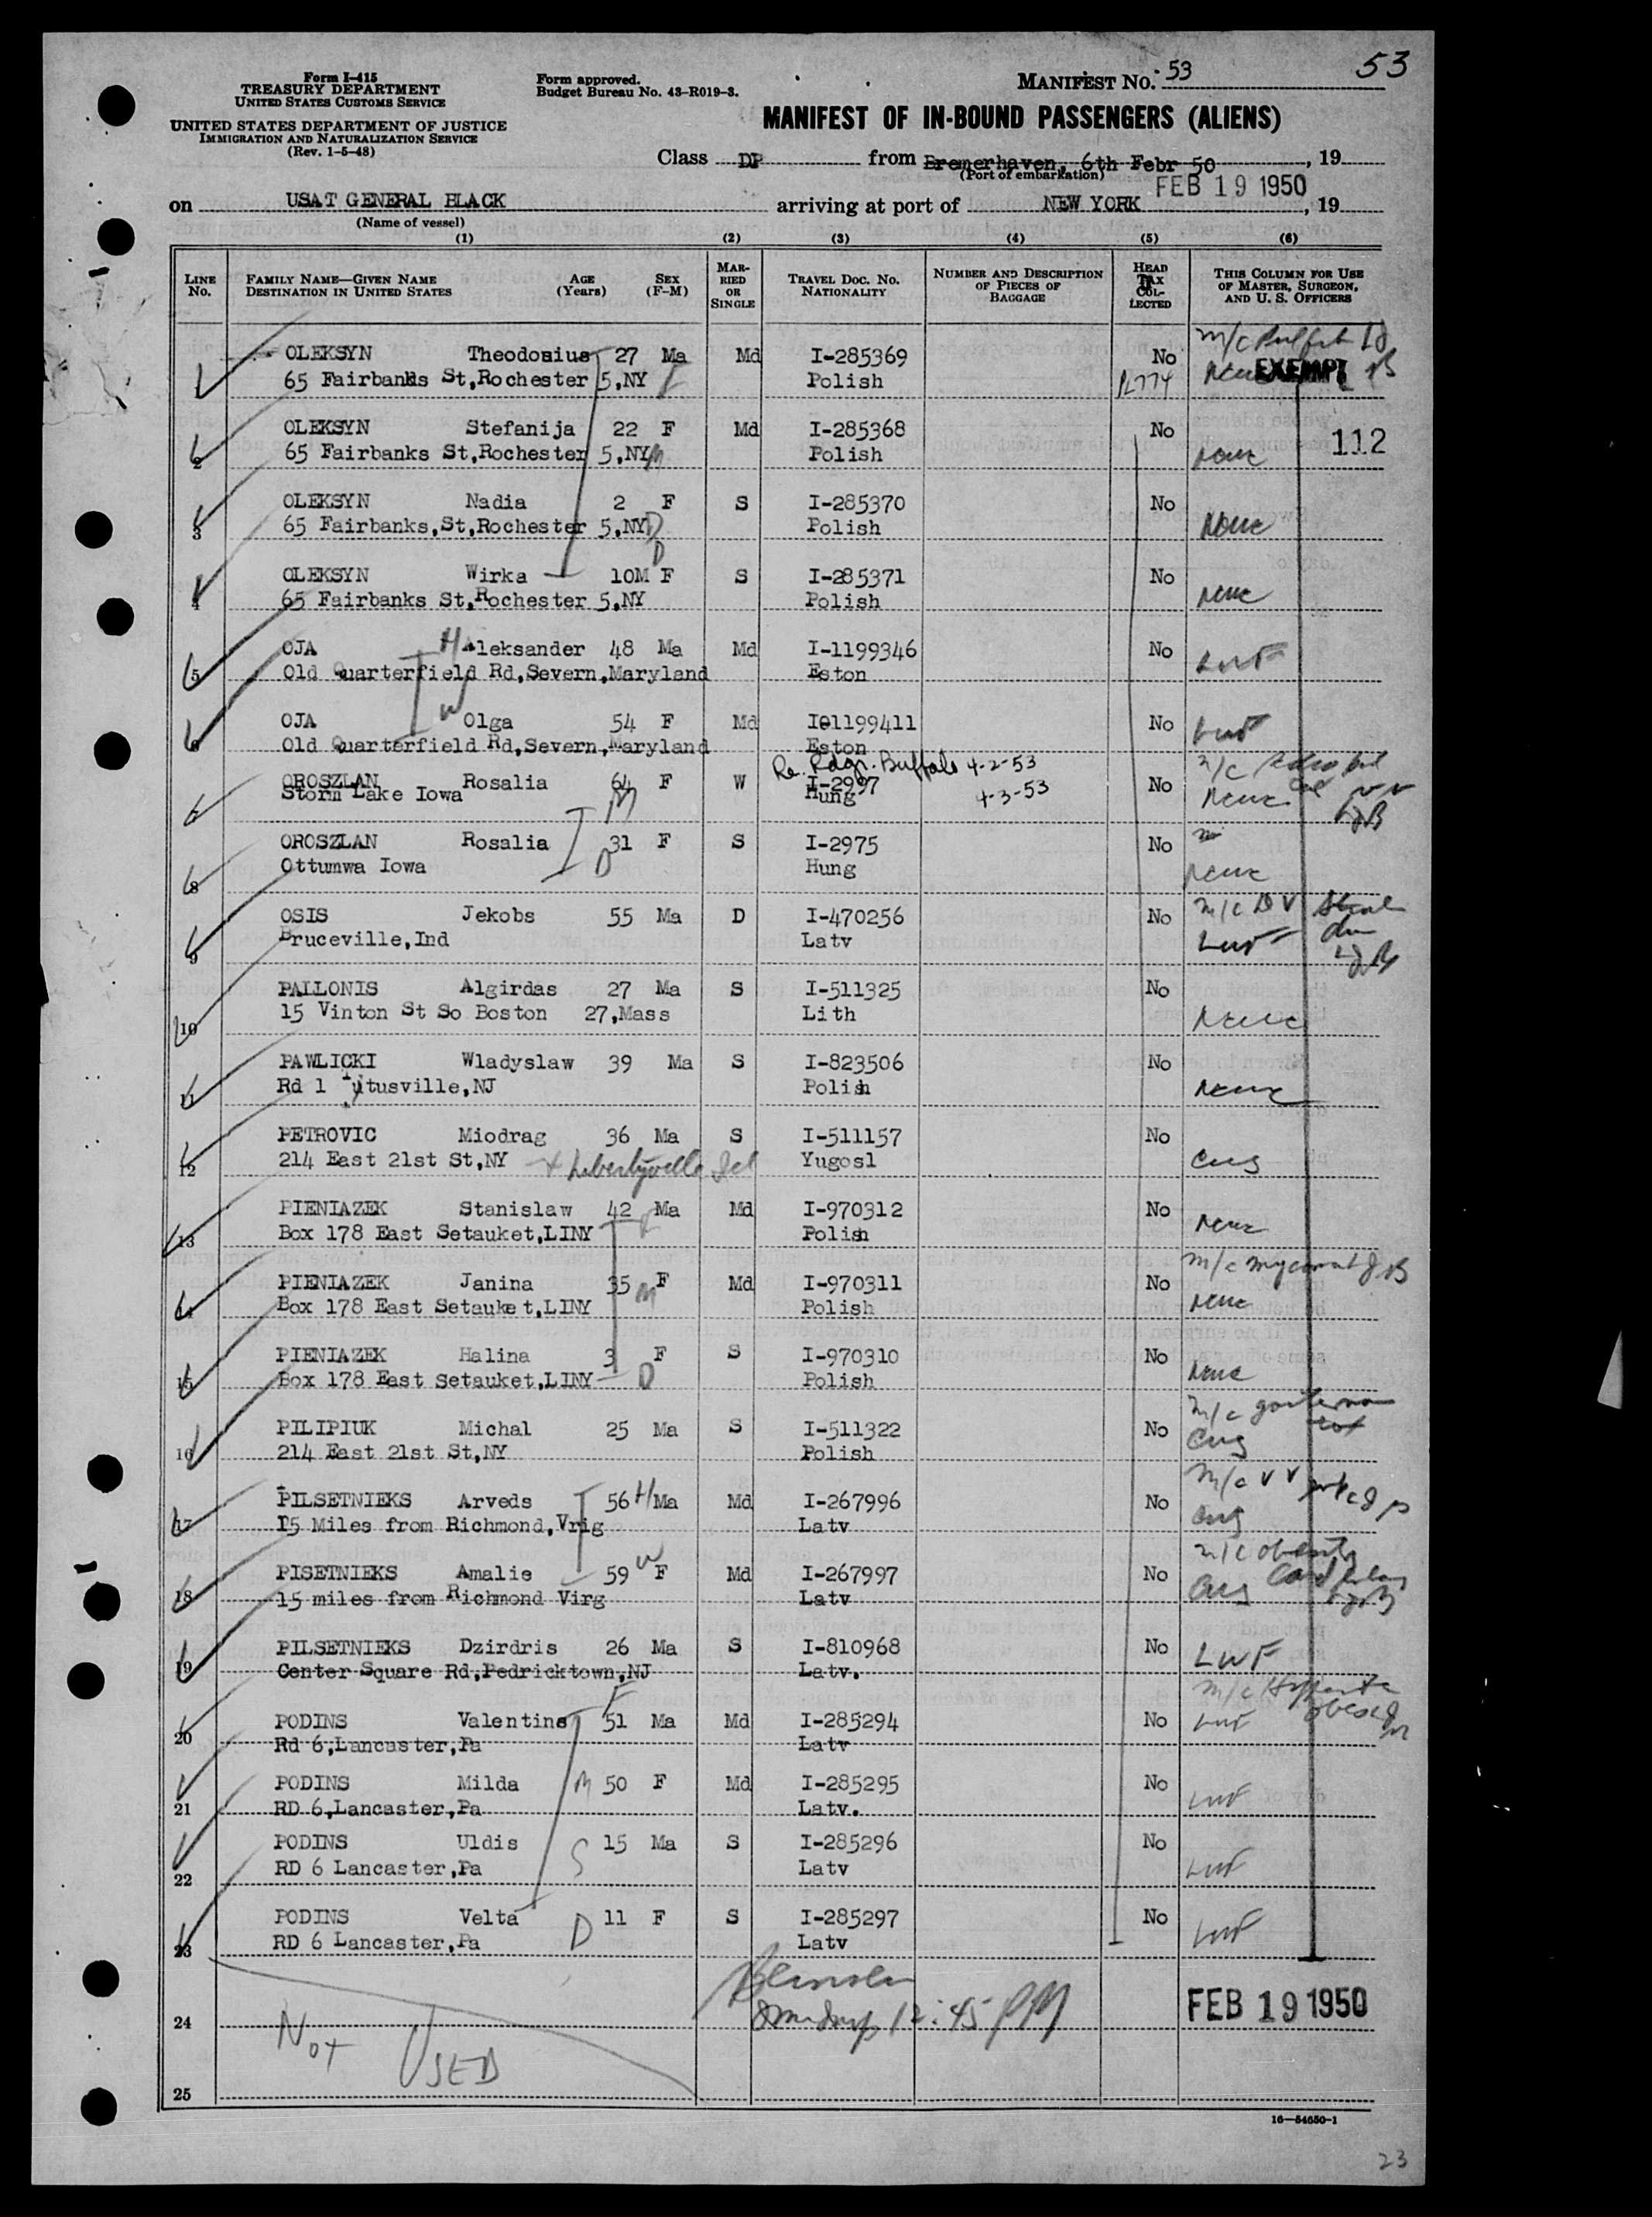 53
Form I-415
TREASURY DEPARTMENT
UNITED STATES CUSTOMS SERVICE
UNITED STATES DEPARTMENT OF JUSTICE
IMMIGRATION AND NATURALIZATION SERVICE
(Rev. 1-5-48)
Form approved.
Budget Bureau No. 43-R019-3.
MANIFEST NO. 53
MANIFEST OF IN-BOUND PASSENGERS (ALIENS)
Class DP from Bremerhaven, 6th Febr 50, 19
(Port of embarkation)
FEB 19 1950
on USAT GENERAL BLACK arriving at port of NEW YORK, 19
(Name of vessel)
(1) (2) (3) (4) (5) (6)
LINE No. FAMILY NAME—GIVEN NAME DESTINATION IN UNITED STATES AGE (Years) SEX (F-M) MARRIED OR SINGLE TRAVEL DOC. NO. NATIONALITY NUMBER AND DESCRIPTION OF PIECES OF BAGGAGE HEAD TAX COLLECTED THIS COLUMN FOR USE OF MASTER, SURGEON, AND U. S. OFFICERS
1 OLEKSYN Theodosius 27 Ma Md I-285369 No m/c
65 Fairbanks St,Rochester 5,NY F Polish None EXEMPT
2 OLEKSYN Stefanija 22 F Md I-285368 No 112
65 Fairbanks St,Rochester 5,NY M Polish None
3 OLEKSYN Nadia 2 F S I-285370 No
65 Fairbanks,St,Rochester 5,NY D Polish None
D
4 OLEKSYN Wirka 10M F S I-285371 No
65 Fairbanks St,Rochester 5,NY Polish None
5 OJA H Aleksander 48 Ma Md I-1199346 No LWF
Old Quarterfield Rd,Severn,Maryland Eston
6 OJA W Olga 54 F Md I01199411 No LWF
Old Quarterfield Rd,Severn,Maryland Eston
Re. Rdgn. Buffalo 4-2-53
7 OROSZLAN Rosalia 64 F W I-2997 4-3-53 No m/c
Storm Lake Iowa M Hung None
8 OROSZLAN Rosalia 31 F S I-2975 No
Ottumwa Iowa D Hung None
9 OSIS Jekobs 55 Ma D I-470256 No m/c D V
Bruceville,Ind Latv LWF
10 PALLONIS Algirdas 27 Ma S I-511325 No
15 Vinton St So Boston 27,Mass Lith None
11 PAWLICKI Wladyslaw 39 Ma S I-823506 No
Rd 1 Tytusville,NJ Polish None
12 PETROVIC Miodrag 36 Ma S I-511157 No
214 East 21st St,NY Libertyville Ill Yugosl
13 PIENIAZEK Stanislaw 42 Ma Md I-970312 No
Box 178 East Setauket,LINY F Polish None
14 PIENIAZEK Janina 35 F Md I-970311 No m/c
Box 178 East Setauket,LINY M Polish None
15 PIENIAZEK Halina 3 F S I-970310 No
Box 178 East Setauket,LINY D Polish None
16 PILIPIUK Michal 25 Ma S I-511322 No m/c
214 East 21st St,NY Polish
17 PILSETNIEKS Arveds 56 H Ma Md I-267996 No m/c V V
15 Miles from Richmond,Vrig Latv
18 PISETNIEKS Amalie 59 W F Md I-267997 No m/c obesity
15 miles from Richmond Virg Latv
19 PILSETNIEKS Dzirdris 26 Ma S I-810968 No LWF
Center Square Rd,Pedricktown,NJ Latv.
20 PODINS Valentins F 51 Ma Md I-285294 No m/c LWF
Rd 6,Lancaster,Pa Latv
21 PODINS Milda M 50 F Md I-285295 No LWF
RD 6,Lancaster,Pa Latv.
22 PODINS Uldis S 15 Ma S I-285296 No LWF
RD 6 Lancaster,Pa Latv
23 PODINS Velta D 11 F S I-285297 No LWF
RD 6 Lancaster,Pa Latv
24 12:45 PM FEB 19 1950
NOT USED
25
16—54650-1
23